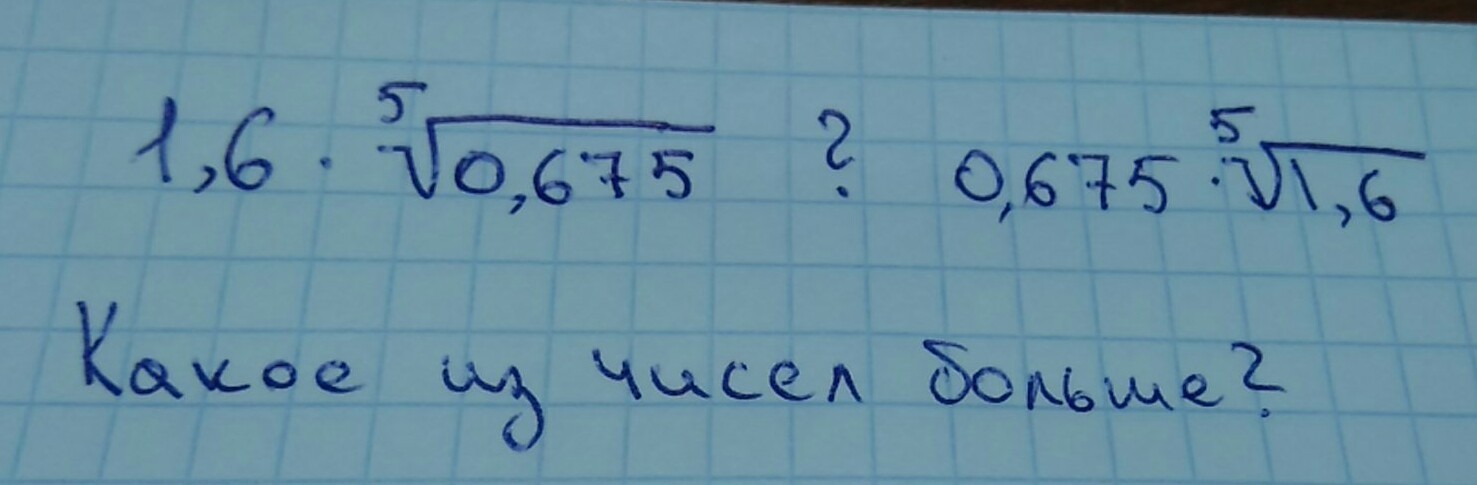 1,6 · ⁵√0,675 ? 0,675 · ⁵√1,6
Какое из чисел больше?